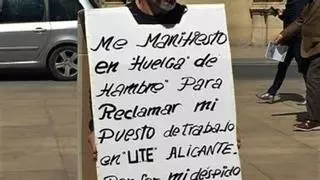 Me Manifiesto
en Huelga de
Hambre Para
Reclamar mi
Puesto de trabajo
en "LITE" ALICANTE.
Por ser mi despido